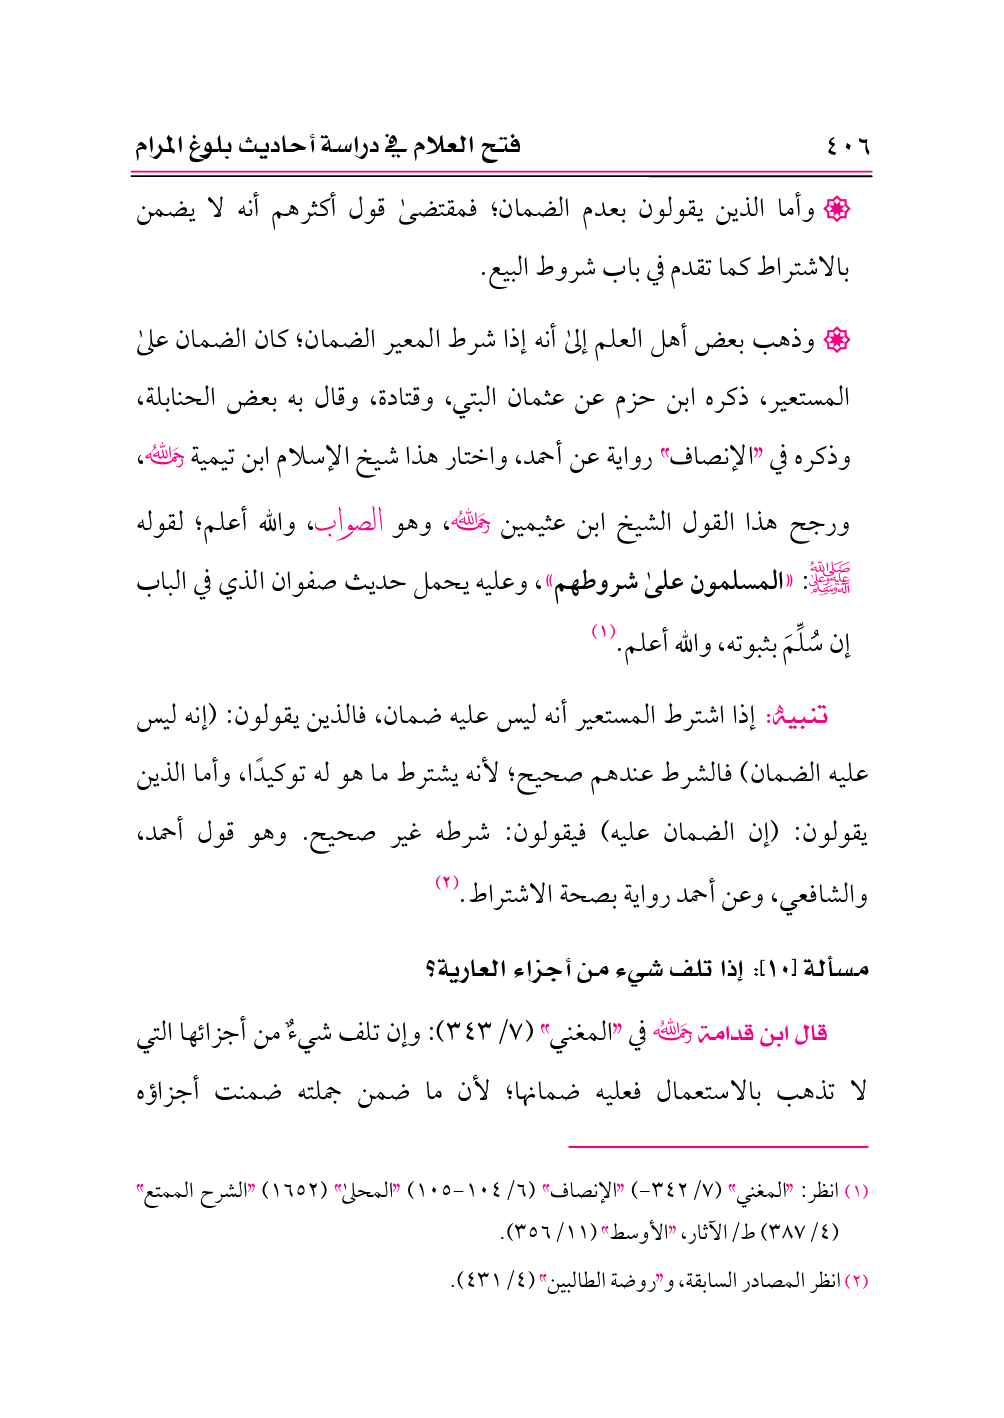 ٤٠٦ فتح العلام في دراسة أحاديث بلوغ المرام
وأما الذين يقولون بعدم الضمان؛ فمقتضىٰ قول أكثرهم أنه لا يضمن
بالاشتراط كما تقدم في باب شروط البيع.
وذهب بعض أهل العلم إلىٰ أنه إذا شرط المعير الضمان؛ كان الضمان علىٰ
المستعير، ذكره ابن حزم عن عثمان البتي، وقتادة، وقال به بعض الحنابلة،
وذكره في "الإنصاف" رواية عن أحمد، واختار هذا شيخ الإسلام ابن تيمية رحمه الله،
ورجح هذا القول الشيخ ابن عثيمين رحمه الله، وهو الصواب، والله أعلم؛ لقوله
صلى الله عليه وعلى آله وسلم: «المسلمون علىٰ شروطهم»، وعليه يحمل حديث صفوان الذي في الباب
إن سُلِّمَ بثبوته، والله أعلم.(١)
تنبيهٌ: إذا اشترط المستعير أنه ليس عليه ضمان، فالذين يقولون: (إنه ليس
عليه الضمان) فالشرط عندهم صحيح؛ لأنه يشترط ما هو له توكيدًا، وأما الذين
يقولون: (إن الضمان عليه) فيقولون: شرطه غير صحيح. وهو قول أحمد،
والشافعي، وعن أحمد رواية بصحة الاشتراط.(٢)
مسألة [١٠]: إذا تلف شيء من أجزاء العارية؟
قال ابن قدامة رحمه الله في "المغني" (٧/ ٣٤٣): وإن تلف شيءٌ من أجزائها التي
لا تذهب بالاستعمال فعليه ضمانها؛ لأن ما ضمن جملته ضمنت أجزاؤه
(١) انظر: "المغني" (٧/ ٣٤٢-) "الإنصاف" (٦/ ١٠٤-١٠٥) "المحلىٰ" (١٦٥٢) "الشرح الممتع"
(٤/ ٣٨٧) ط/ الآثار، "الأوسط" (١١/ ٣٥٦).
(٢) انظر المصادر السابقة، و"روضة الطالبين" (٤/ ٤٣١).